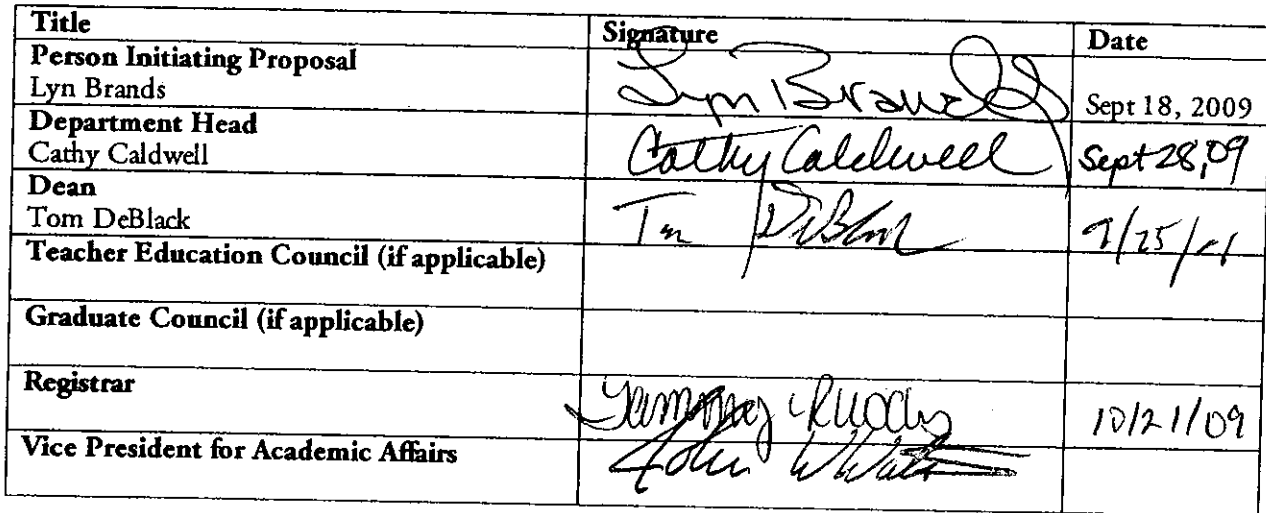 Title Signature Date
Person Initiating Proposal
Lyn Brands Lyn Brands Sept 18, 2009
Department Head
Cathy Caldwell Cathy Caldwell Sept 28, 09
Dean
Tom DeBlack Tom DeBlack 9/25/
Teacher Education Council (if applicable)
Graduate Council (if applicable)
Registrar Tammy Rhodes 10/21/09
Vice President for Academic Affairs John W Watson